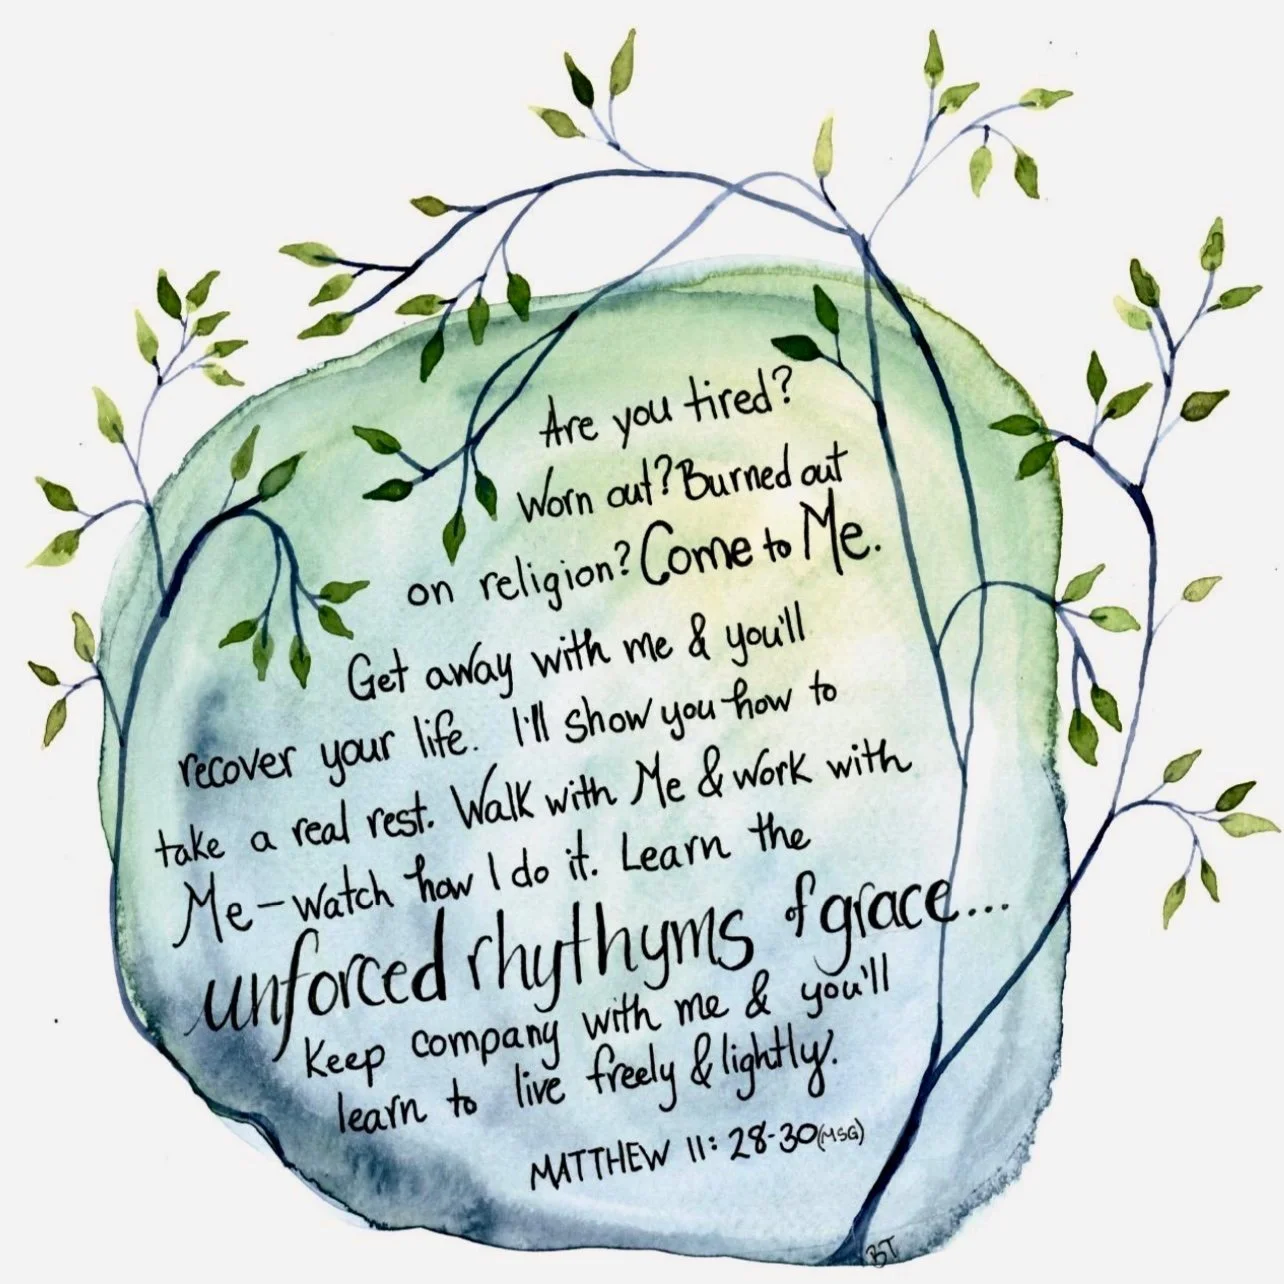 Are you tired?
Worn out? Burned out
on religion? Come to Me.
Get away with me & you'll
recover your life. I'll show you how to
take a real rest. Walk with Me & work with
Me - watch how I do it. Learn the
unforced rhythyms of grace...
Keep company with me & you'll
learn to live freely & lightly.
MATTHEW 11: 28-30 (MSG)
BT